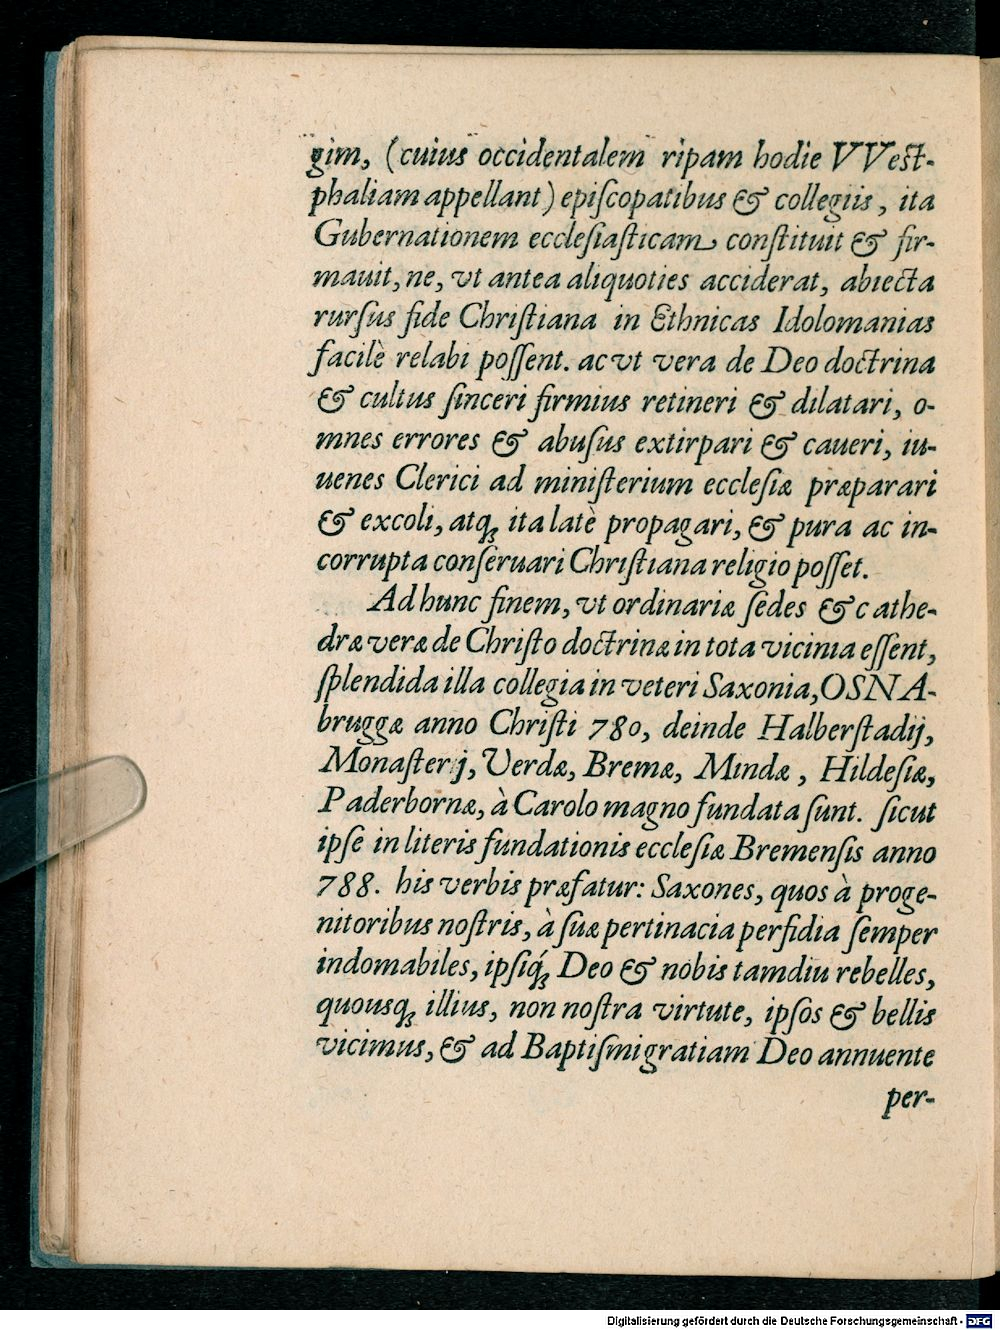 gim, (cuius occidentalem ripam hodie VVest-
phaliam appellant) epiſcopatibus & collegiis, ita
Gubernationem eccleſiaſticam conſtituit & fir-
mauit, ne, vt antea aliquoties acciderat, abiecta
rurſus fide Chriſtiana in Ethnicas Idolomanias
facilè relabi poſſent. ac vt vera de Deo doctrina
& cultus ſinceri firmius retineri & dilatari, o-
mnes errores & abuſus extirpari & caueri, iu-
uenes Clerici ad miniſterium eccleſiæ præparari
& excoli, atq́; ita latè propagari, & pura ac in-
corrupta conſeruari Chriſtiana religio poſſet.
Ad hunc finem, vt ordinariæ ſedes & cathe-
dræ veræ de Chriſto doctrinæ in tota vicinia eſſent,
ſplendida illa collegia in veteri Saxonia, OSNA-
bruggæ anno Chriſti 780, deinde Halberſtadij,
Monaſterij, Verdæ, Bremæ, Mindæ, Hildeſiæ,
Paderbornæ, à Carolo magno fundata ſunt. ſicut
ipſe in literis fundationis eccleſiæ Bremenſis anno
788. his verbis præfatur: Saxones, quos à proge-
nitoribus noſtris, à ſuæ pertinacia perfidia ſemper
indomabiles, ipſiq́; Deo & nobis tamdiu rebelles,
quousq; illius, non noſtra virtute, ipſos & bellis
vicimus, & ad Baptiſmi gratiam Deo annuente
per-
Digitalisierung gefördert durch die Deutsche Forschungsgemeinschaft - DFG